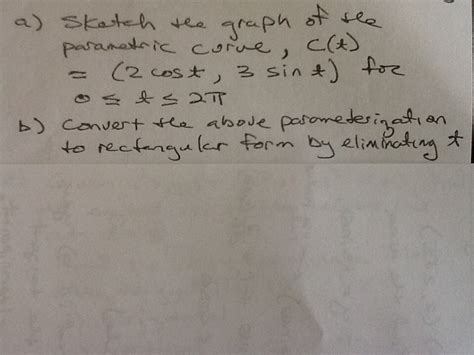 a) Sketch the graph of the
parametric curve, C(t)
= (2 cost, 3 sin t) for
0 ≤ t ≤ 2π
b) Convert the above parameterization
to rectangular form by eliminating t